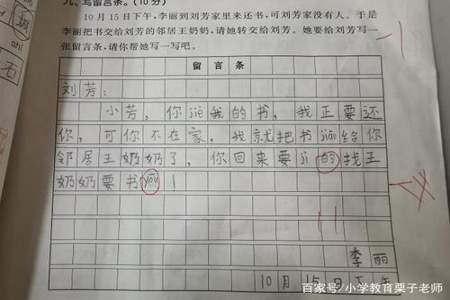 九、写留言条。(10分)
10月15日下午,李丽到刘芳家里来还书,可刘芳家没有人。于是
李丽把书交给刘芳的邻居王奶奶,请她转交给刘芳。她要给刘芳写一
张留言条,请你帮她写一写吧。
留言条
刘芳:
小芳,你jiè我的书,我正要还
你,可你不在家,我就把书给你
邻居王奶奶了,你回来要jì的找王
奶奶要书!
李丽
10月15日下午
shi
石
百家号/小学教育栗子老师